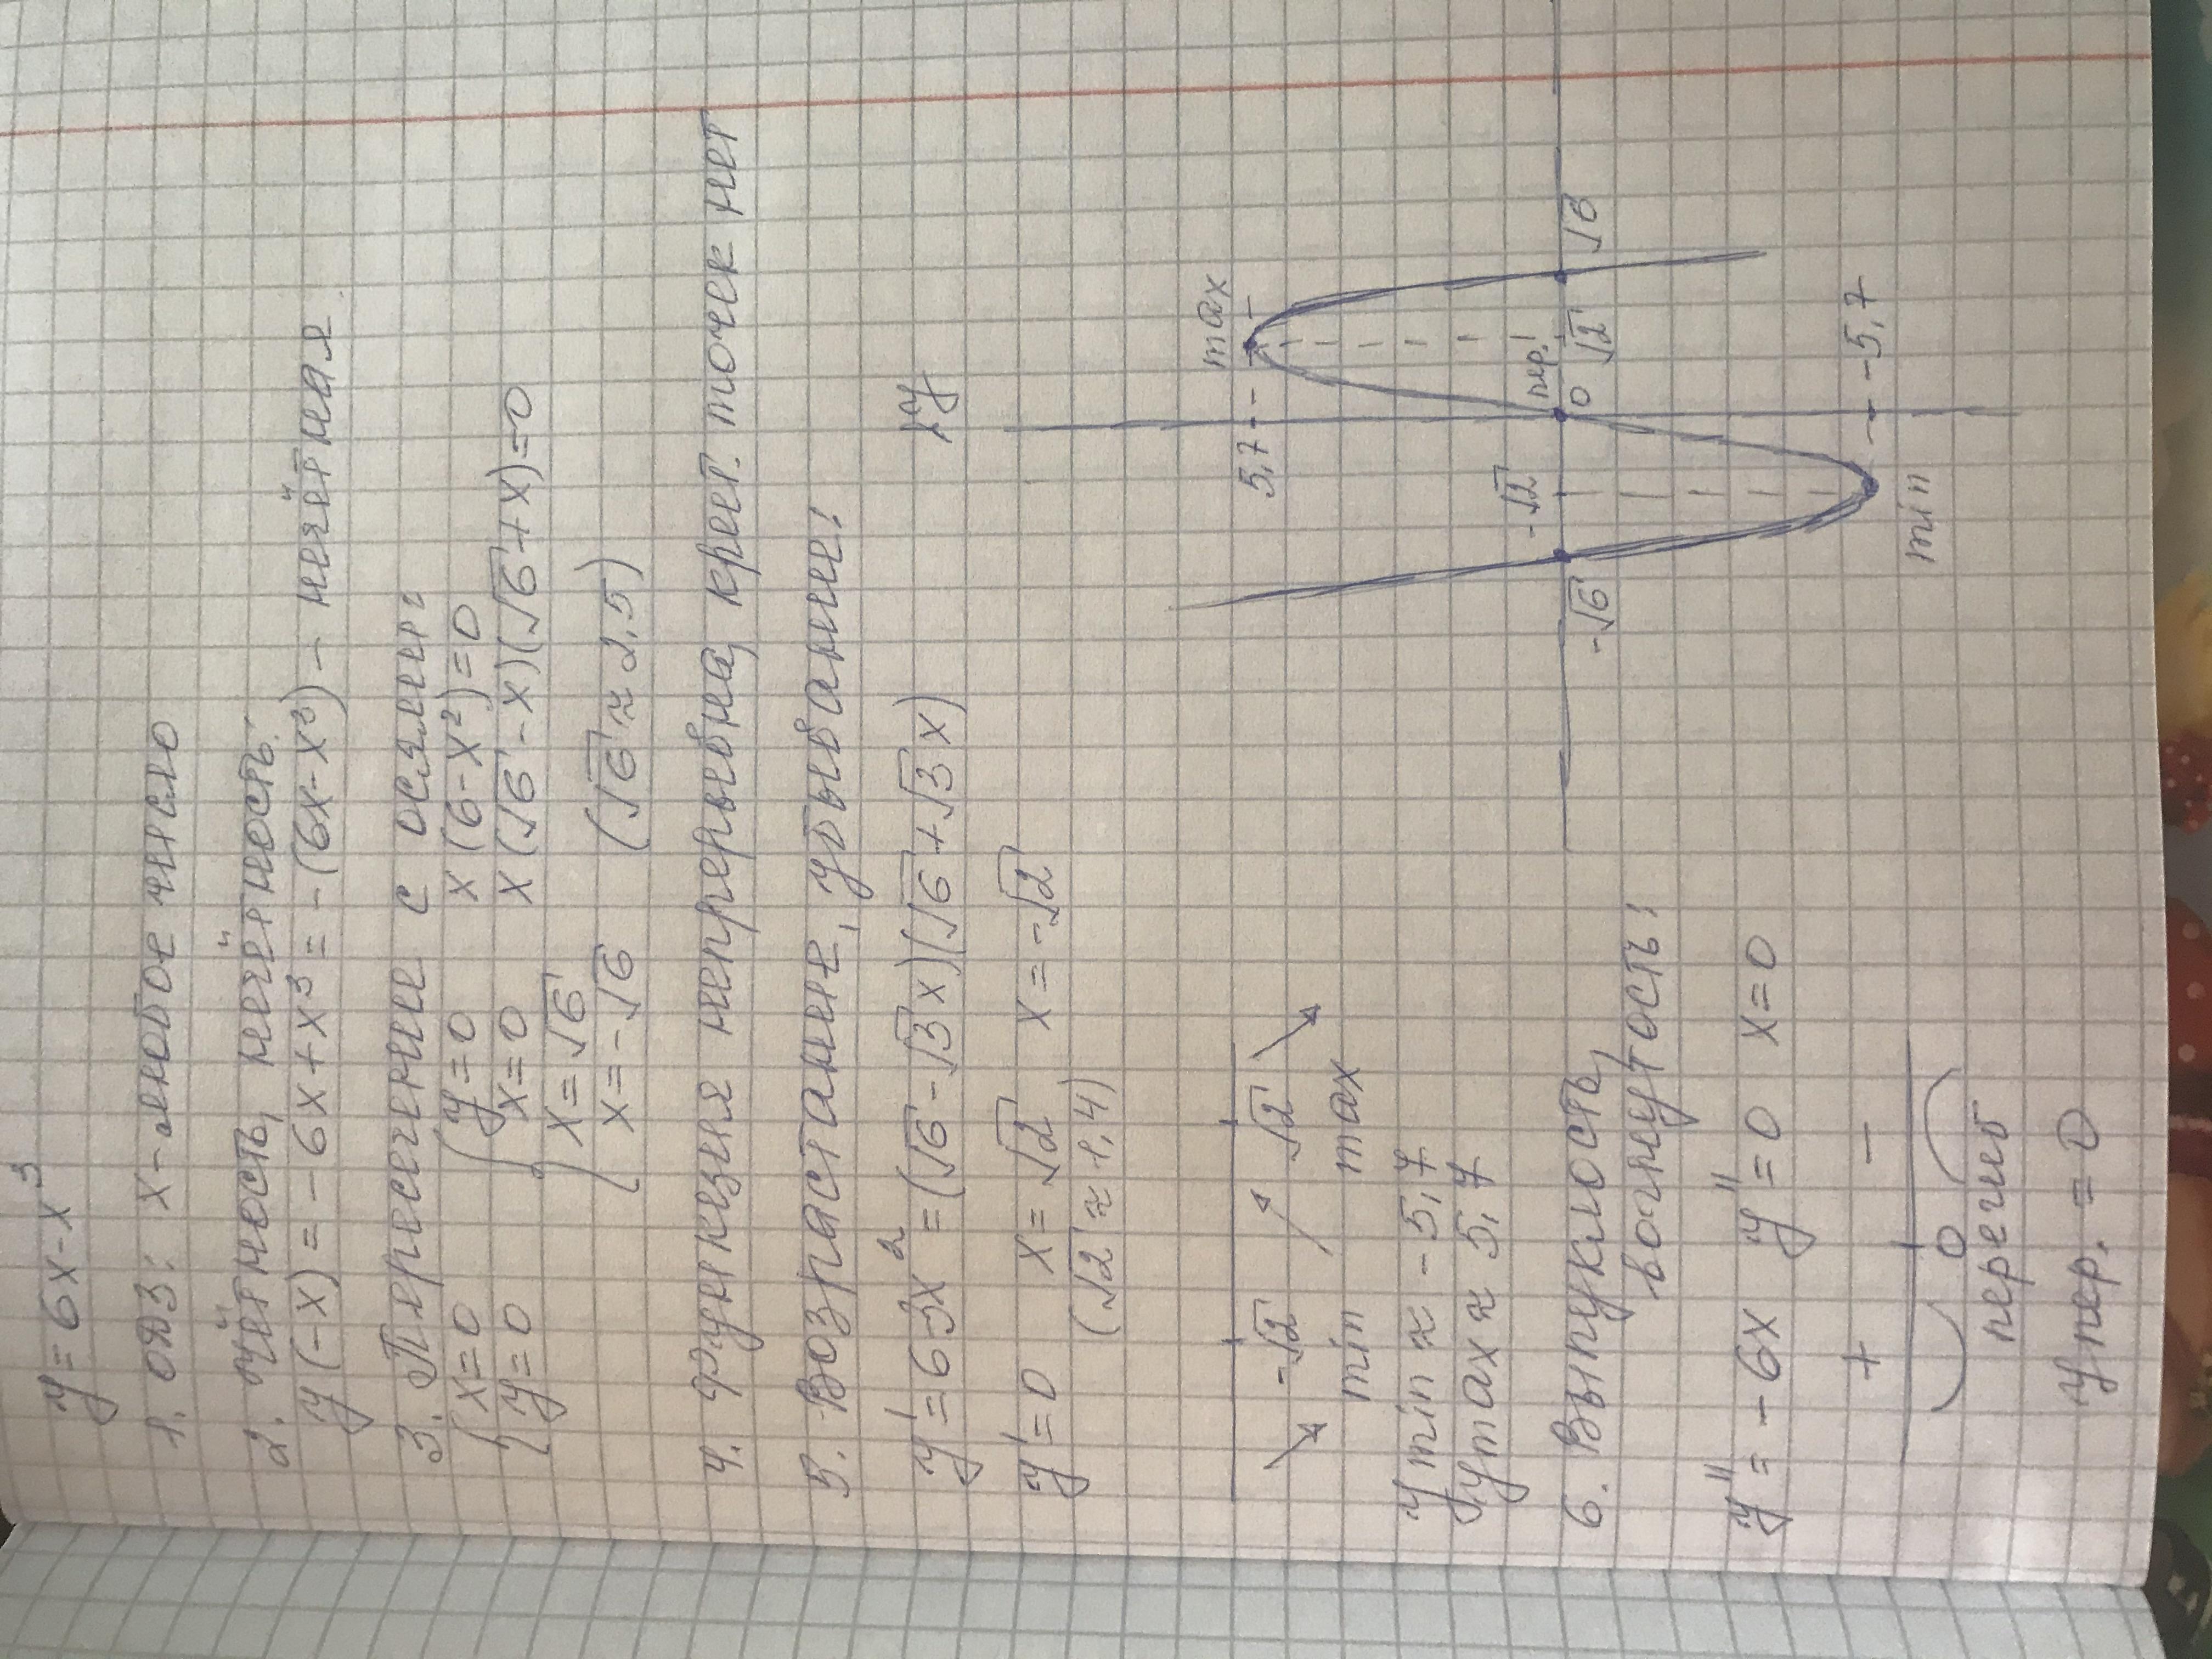 y = 6x-x³
1. ОДЗ: x-любое число
2. Чётность, нечётность:
y(-x) = -6x+x³ = -(6x-x³) - нечётная
3. Пересечение с осями:
{x=0 {y=0 x(6-x²)=0
{y=0 {x=0 x(√6-x)(√6+x)=0
x=√6
x=-√6 (√6≈2,5)
4. Функция непрерывна, крит. точек нет
5. Возрастание, убывание:
y'=6-3x²=(√6-√3x)(√6+√3x)
y'=0 x=√2 x=-√2
(√2≈1,4)
-√2 √2
min max
y min ≈ -5,7
y max ≈ 5,7
6. Выпуклость,
вогнутость:
y''=-6x y''=0 x=0
+ -
0
перегиб
y пер. = 0
y
max
5,7
пер.
-√6 -√2 0 √2 √6
-5,7
min